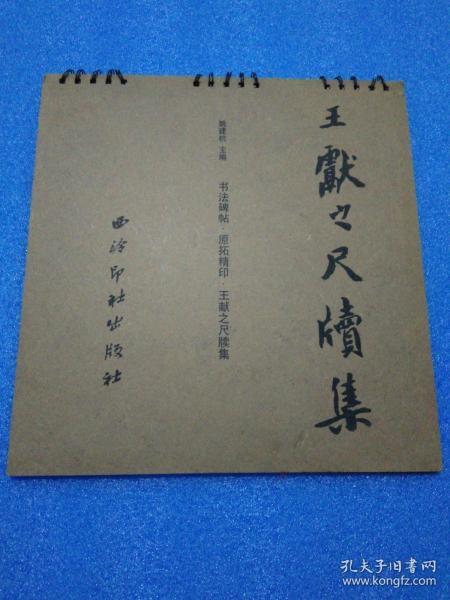 王獻之尺牘集
姚建杭 主编
书法碑帖·原拓精印·王献之尺牍集
西泠印社出版社
孔夫子旧书网
www.kongfz.com